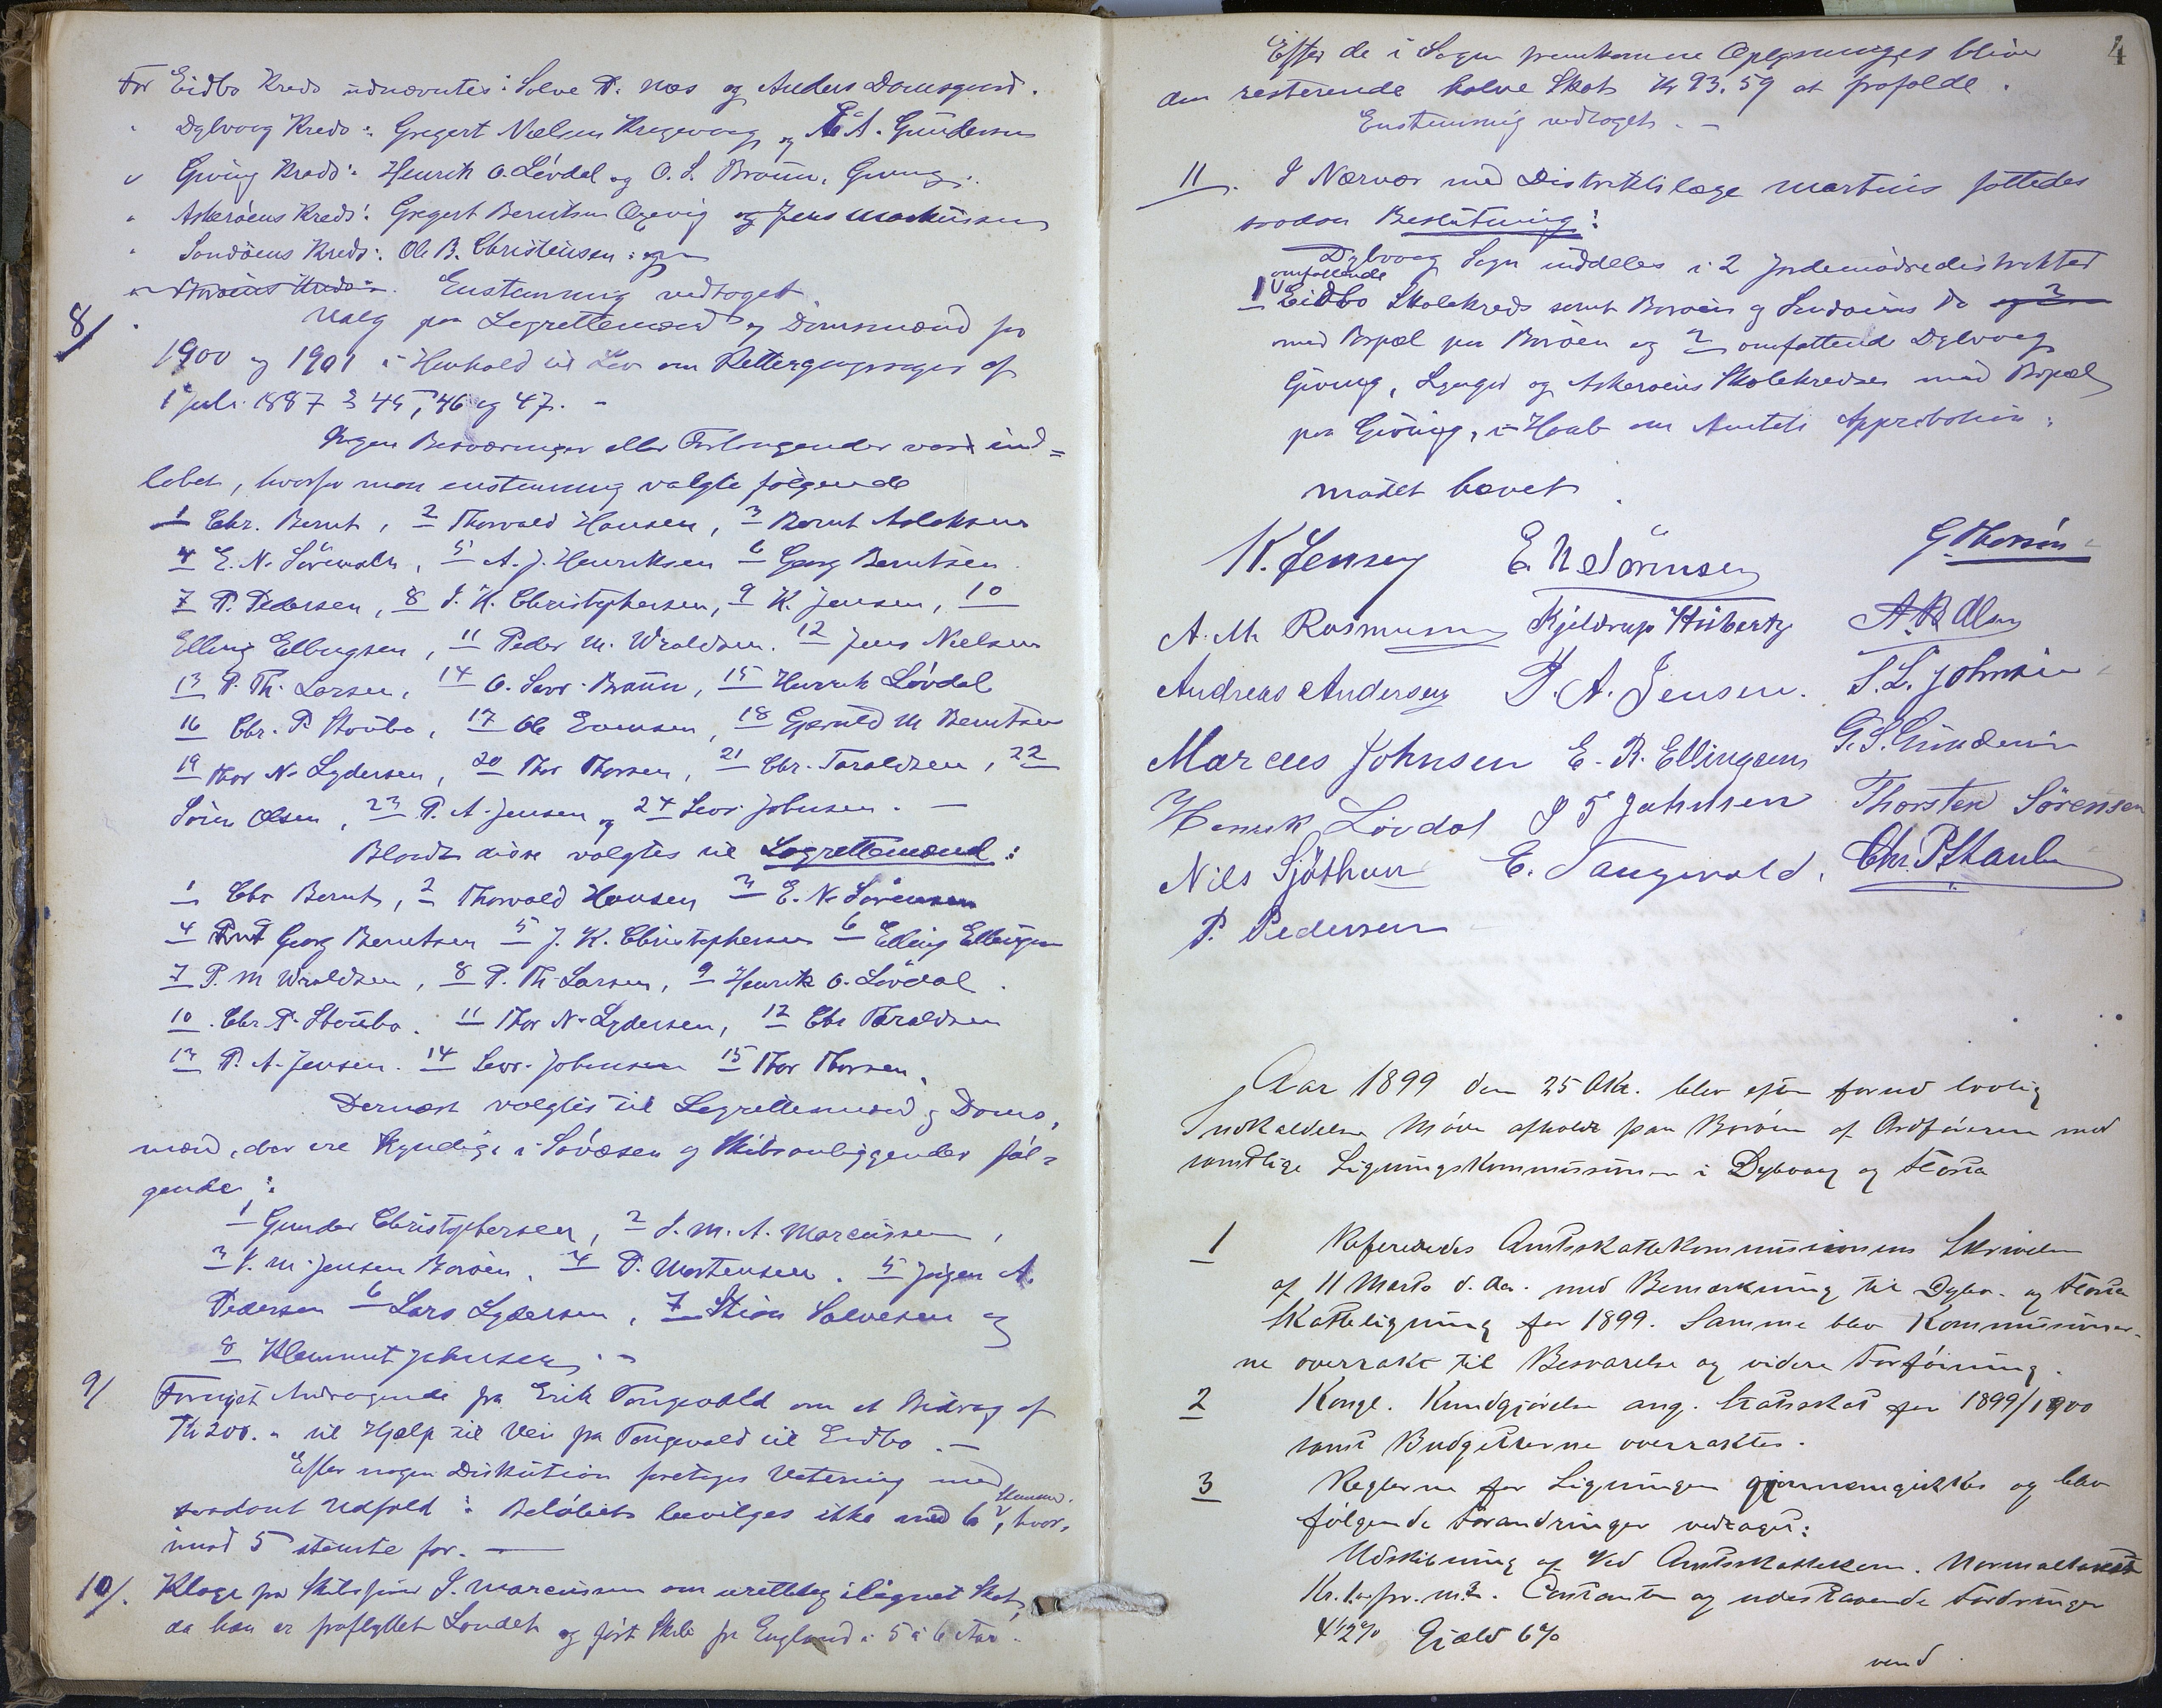 For Eidbo Kreds udnævntes: Salve T. Næs og Anders Damsgaard.
" Dybvaag Kreds: Gregert Nielsen Krogevaag og A. Gundersen
" Gjving Kreds: Henrik O. Lövdal og O. S. Braün, Gjving.
" Askeröens Kreds: Gregert Berntsen Ogevig og Jens Markussen
" Sandöens Kreds: Ole B. Christensen: og
" Boröens Kreds: Enstemmig vedtaget.
8/ Valg paa Lagrettemænd og Domsmænd for
1900 og 1901 i Henhold til Lov om Rettergangsmaade af
1 juli 1887 § 45, 46 og 47. -
Ingen Besværinger eller Forlangender vare ind=
löbet, hvorfor man enstemmig valgte fölgende
1 Chr. Bernt, 2 Thorvald Hansen, 3 Bernt Aslaksen
4 E. N. Sörensen, 5 A. J. Henriksen 6 Georg Berntsen
7 P. Pedersen, 8 J. K. Christophersen, 9 K. Jensen, 10
Elling Ellingsen, 11 Peder M. Wraldsen. 12 Jens Nielsen
13 P. Th. Larsen, 14 O. Sevr. Braün, 15 Henrik Lövdal
16 Chr. P. Staübo, 17 Ole Evensen, 18 Gjeruld M Berntsen
19 Thor N. Lydersen, 20 Thor Thorsen, 21 Chr. Taraldsen, 22
Sören Olsen, 23 P. A. Jensen og 24 Sevr. Johnsen. -
Blandt disse valgtes til Lagrettemænd:
1 Chr Bernt, 2 Thorvald Hansen 3 E. N. Sörensen
4 Georg Berntsen 5 J. K. Christophersen 6 Elling Ellingsen
7 P. M Wraldsen, 8 P. Th Larsen, 9 Henrik O. Lövdal.
10. Chr. P. Staübo. 11 Thor N. Lydersen, 12 Chr Taraldsen
13 P. A. Jensen. 14 Sevr. Johnsen 15 Thor Thorsen.
Dernæst valgtes til Lagrettemænd og Doms-
mænd, der ere kyndige i Sövæsen og Skibsanliggender föl-
gende:
1 Gunder Christophersen, 2 J. M. A. Marcussen,
3 J. M. Jensen Boröen. 4 P. Mortensen. 5 Jörgen A.
Pedersen 6 Lars Lydersen, 7 Stian Salvesen og
8 Klemmet Johnsen. -
9/ Fornyet Andragende fra Erik Tangevald om et Bidrag af
Kr 200. " til Hjælp til Vei fra Tangevald til Eidbo. -
Efter nogen Diskution foretoges Votering med
saadant Udfald: Belöbet bevilges ikke med 6 Stemmer, hvor-
imod 5 stemte for. -
10/. Klage fra Skibsförer J. Marcussen om urettelig ilignet Skat,
da han er fraflyttet Landet og fört Skib fra England i 5 à 6 Aar.
4
Efter de i Sagen fremkomne Oplysninger bliver
den resterende halve Skat Kr 93.59 at frafalde.
Enstemmig vedtaget. -
11. I Nærvær med Distriktslæge Martens fattedes
saadan Beslutning:
Dybvaag Sogn inddeles i 2 Jordemödredistrikter
1 omfattende Eidbo Skolekreds samt Boröens og Sandöens Do og 3
med Bopæl paa Boröen og 2 omfattende Dybvaag
Gjving, Lyngör og Askeröens Skolekredse med Bopæl
paa Gjving, i Haab om Amtets Approbation.
Mødet hævet.
K. Jensen E. N Sörensen G Thorsen
A. M. Rasmussen Kjeldrup Hübertz A. B Olsen
Andreas Andersen P. A. Jensen. S. L. Johnsen
Marcus Johnsen E. R. Ellingsen G. S. Gundersen
Henrik Lövdal J T Johnsen Thorsten Sörensen
Nils Sjöthun E. Tangevald. Chr. P. Staubo
P. Pedersen
Aar 1899 den 25 Okt. blev efter forud lovlig
Indkaldelse Möde afholdt paa Boröen af Ordföreren med
samtlige Ligningskommissioner i Dybvaag og Flosta
1 Refereredes Amtsskattekommissionens Skrivelse
af 11 Marts d. Aa. med Bemærkning til Dybv. og Flosta
Skatteligning for 1899. Samme blev Kommissioner-
ne overrakt til Besvarelse og videre Forföining.
2 Kongl. Kundgjörelse ang. Statsskat for 1899/1900
samt Budgetterne overraktes.
3 Reglerne for Ligningen gjennemgikkes og blev
fölgende Forandringer vedtaget:
Udskibning af Ved Amtsskattekom. Normaltakst
Kr. 1.00 pr. m3. Contanter og udestaaende Fordringer
4 1/2% Gjæld 6%
vend